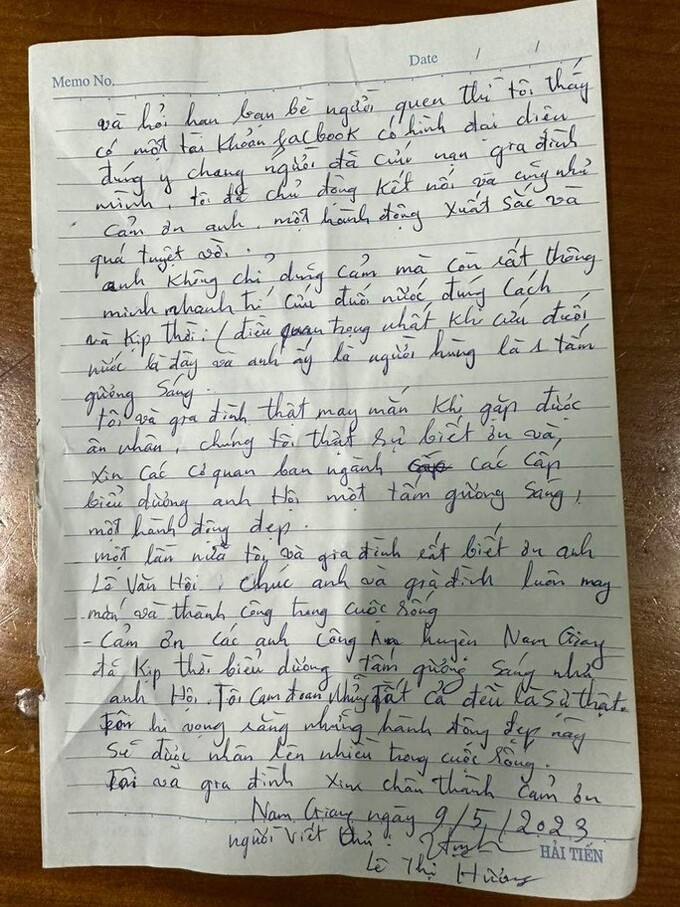 Memo No. Date / /
và hỏi han bạn bè người quen thì tôi thấy
có một tài khoản facbook có hình đại diện
đúng y chang người đã cứu nạn gia đình
mình, tôi đã chủ động kết nối và cũng như
cảm ơn anh, một hành động xuất sắc và
quá tuyệt vời.
anh không chỉ dũng cảm mà còn rất thông
minh nhanh trí cứu đuối nước đúng cách
và kịp thời; (điều quan trọng nhất khi cứu đuối
nước là đây và anh ấy là người hùng là 1 tấm
gương sáng.
Tôi và gia đình thật may mắn khi gặp được
ân nhân, chúng tôi thật sự biết ơn và,
xin các cơ quan ban ngành các cấp
biểu dương anh Hội một tấm gương sáng,
một hành động đẹp.
một lần nữa tôi và gia đình rất biết ơn anh
Lê Văn Hội, chúc anh và gia đình luôn may
mắn và thành công trong cuộc sống
- Cảm ơn các anh Công An huyện Nam Giang
đã kịp thời biểu dương tấm gương sáng như
anh Hội. Tôi cam đoan những tất cả đều là sự thật.
hi vọng rằng những hành động đẹp này
sẽ được nhân lên nhiều trong cuộc sống.
Tôi và gia đình xin chân thành cảm ơn
Nam Giang ngày 9/5/2023
người viết thư
HẢI TIẾN
Lê Thị Hương